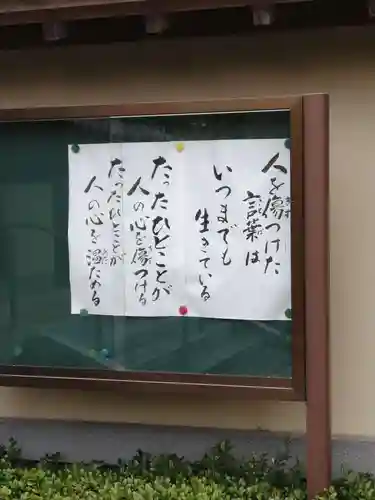 人を傷つけた
言葉は
いつまでも
生きている
たったひとことが
人の心を傷つける
たったひとことが
人の心を温ためる